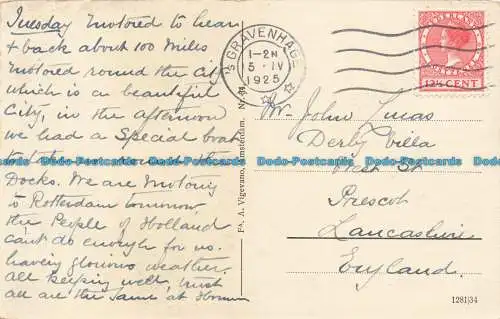 Tuesday Motored to hear
& back about 100 Miles
Motored round the City
which is a beautiful
City, in the afternoon
we had a Special boat
to the
Docks. We are Motoring
to Rotterdam tomorrow
the People of Holland
can't do enough for us.
having glorious weather.
all keeping well, trust
all are the same at Home
Fa. A. Vigevano, Amsterdam. Nr. 44
'S GRAVENHAGE
1-2N
5·IV
1925
NEDERLAND
12½ CENT
Mr John Lucas
Derby Villa
West St
Prescot
Lancashire
England.
1281|34
Dady-Postcards
Dady-Postcards
Dady-Postcards
Dady-Postcards